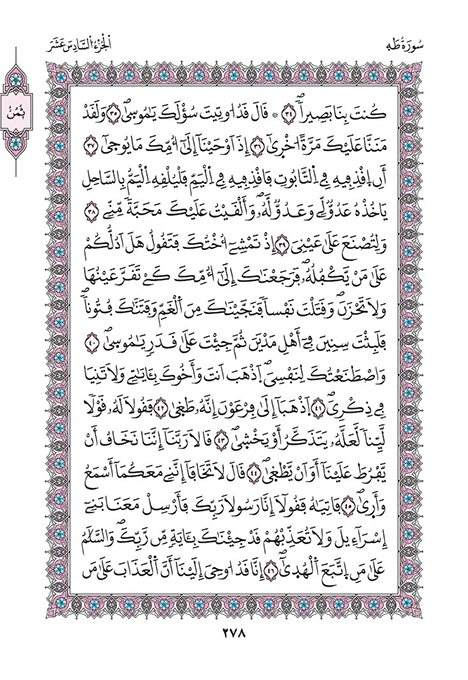 سُورَةُ طَهِ
اَلْجُزْءُ السَّادِسَ عَشَرَ
ثُمُن
كُنتَ بِنَا بَصِيراًۖ ٣٤ ۞ قَالَ قَدُ اوتِيتَ سُؤْلَكَ يَٰمُوسَىٰۖ ٣٥ وَلَقَدْ
مَنَنَّا عَلَيْكَ مَرَّةً اخْرَىٰٓ ٣٦ إِذَ اَوْحَيْنَآ إِلَىٰٓ أُمِّكَ مَا يُوحَىٰٓ ٣٧
أَنِ اِقْذِفِيهِ فِے اِلتَّابُوتِ فَاقْذِفِيهِ فِے اِلْيَمِّ فَلْيُلْقِهِ اِلْيَمُّ بِالسَّاحِلِ
يَاخُذْهُ عَدُوّٞ لِّے وَعَدُوّٞ لَّهُۥۖ وَأَلْقَيْتُ عَلَيْكَ مَحَبَّةٗ مِّنِّے ٣٨
وَلِتُصْنَعَ عَلَىٰ عَيْنِيَۖ ٣٩ إِذْ تَمْشِےٓ أُخْتُكَ فَتَقُولُ هَلَ اَدُلُّكُمْ
عَلَىٰ مَنْ يَّكْفُلُهُۥۖ فَرَجَعْنَٰكَ إِلَىٰٓ أُمِّكَ كَےْ تَقَرَّ عَيْنُهَا
وَلَا تَحْزَنَۖ وَقَتَلْتَ نَفْساٗ فَنَجَّيْنَٰكَ مِنَ اَلْغَمِّ وَفَتَنَّٰكَ فُتُوناٗۖ
فَلَبِثْتَ سِنِينَ فِےٓ أَهْلِ مَدْيَنَ ثُمَّ جِئْتَ عَلَىٰ قَدَرٖ يَٰمُوسَىٰۖ ٤٠
وَاصْطَنَعْتُكَ لِنَفْسِيَۖ اَ۪ذْهَبَ اَنتَ وَأَخُوكَ بِـَٔايَٰتِے وَلَا تَنِيَا
فِے ذِكْرِيَۖ ٤١ اَ۪ذْهَبَآ إِلَىٰ فِرْعَوْنَ إِنَّهُۥ طَغَىٰۖ ٤٢ فَقُولَا لَهُۥ قَوْلاٗ
لَّيِّناٗ لَّعَلَّهُۥ يَتَذَكَّرُ أَوْ يَخْشَىٰۖ ٤٣ قَالَا رَبَّنَآ إِنَّنَا نَخَافُ أَنْ
يَّفْرُطَ عَلَيْنَآ أَوَ اَنْ يَّطْغَىٰۖ ٤٤ قَالَ لَا تَخَافَآ إِنَّنِے مَعَكُمَآ أَسْمَعُ
وَأَرَىٰۖ ٤٥ فَاتِيَٰهُ فَقُولَآ إِنَّا رَسُولَا رَبِّكَ فَأَرْسِلْ مَعَنَا بَنِےٓ
إِسْرَآءِيلَ وَلَا تُعَذِّبْهُمْ قَدْ جِئْنَٰكَ بِـَٔايَةٖ مِّن رَّبِّكَۖ وَالسَّلَٰمُ
عَلَىٰ مَنِ اِتَّبَعَ اَلْهُدَىٰٓۖ ٤٦ إِنَّا قَدُ اوحِيَ إِلَيْنَآ أَنَّ اَلْعَذَابَ عَلَىٰ مَن
٢٧٨